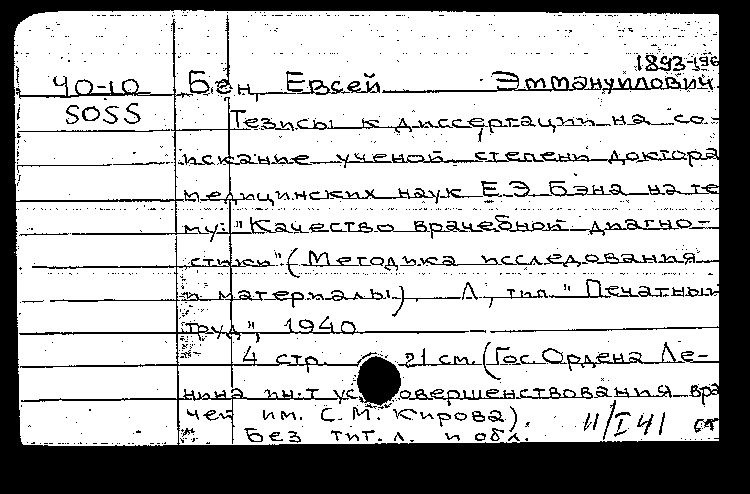 1893-196
40-10 Бен, Евсей Эммануилович.
5055 Тезисы к диссертации на со-
искание ученой степени доктора
медицинских наук Е.Э. Бэна на те
му: "Качество врачебной диагно-
стики" (Методика исследования
и материалы). Л, тип. "Печатный
труд", 1940
4 стр. 21 см. (Гос. Ордена Ле-
нина ин.т ус овершенствования вра
чей им. С. М. Кирова).
Без тит. л. и обл. 11/I 41